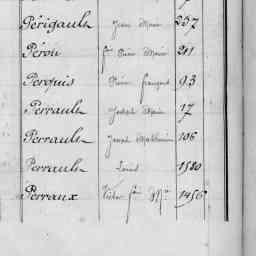 Périgault Jean Marie 237
Pérou fs Pierre Marie 211
Perquis Pierre françois 93
Perrault Joseph Marie 17
Perrault Joseph Mathurin 106
Perrault Louis 1580
Perraux Victor fs Me 1456